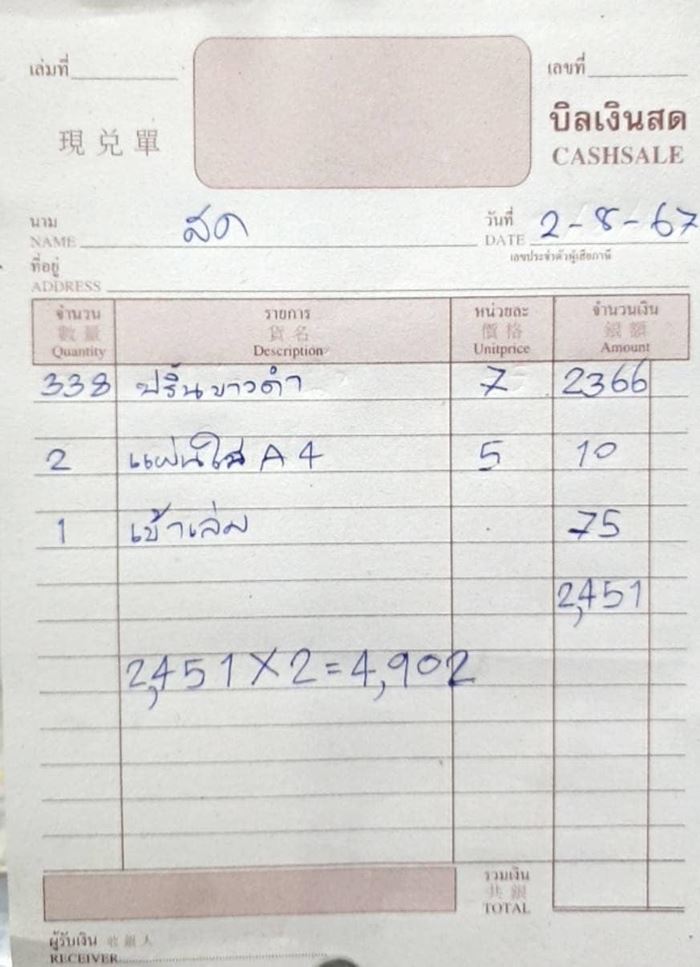 เล่มที่ เลขที่
現兑單 บิลเงินสด
CASHSALE
นาม สด วันที่ 2-8-67
NAME DATE
ที่อยู่ เลขประจำตัวผู้เสียภาษี
ADDRESS
จำนวน รายการ หน่วยละ จำนวนเงิน
數量 貨名 價格 銀額
Quantity Description Unitprice Amount
338 ปริ้นขาวดำ 7 2366
2 แผ่นใส A4 5 10
1 เข้าเล่ม 75
2,451
2,451 X 2 = 4,902
รวมเงิน
共銀
TOTAL
ผู้รับเงิน 收銀人
RECEIVER